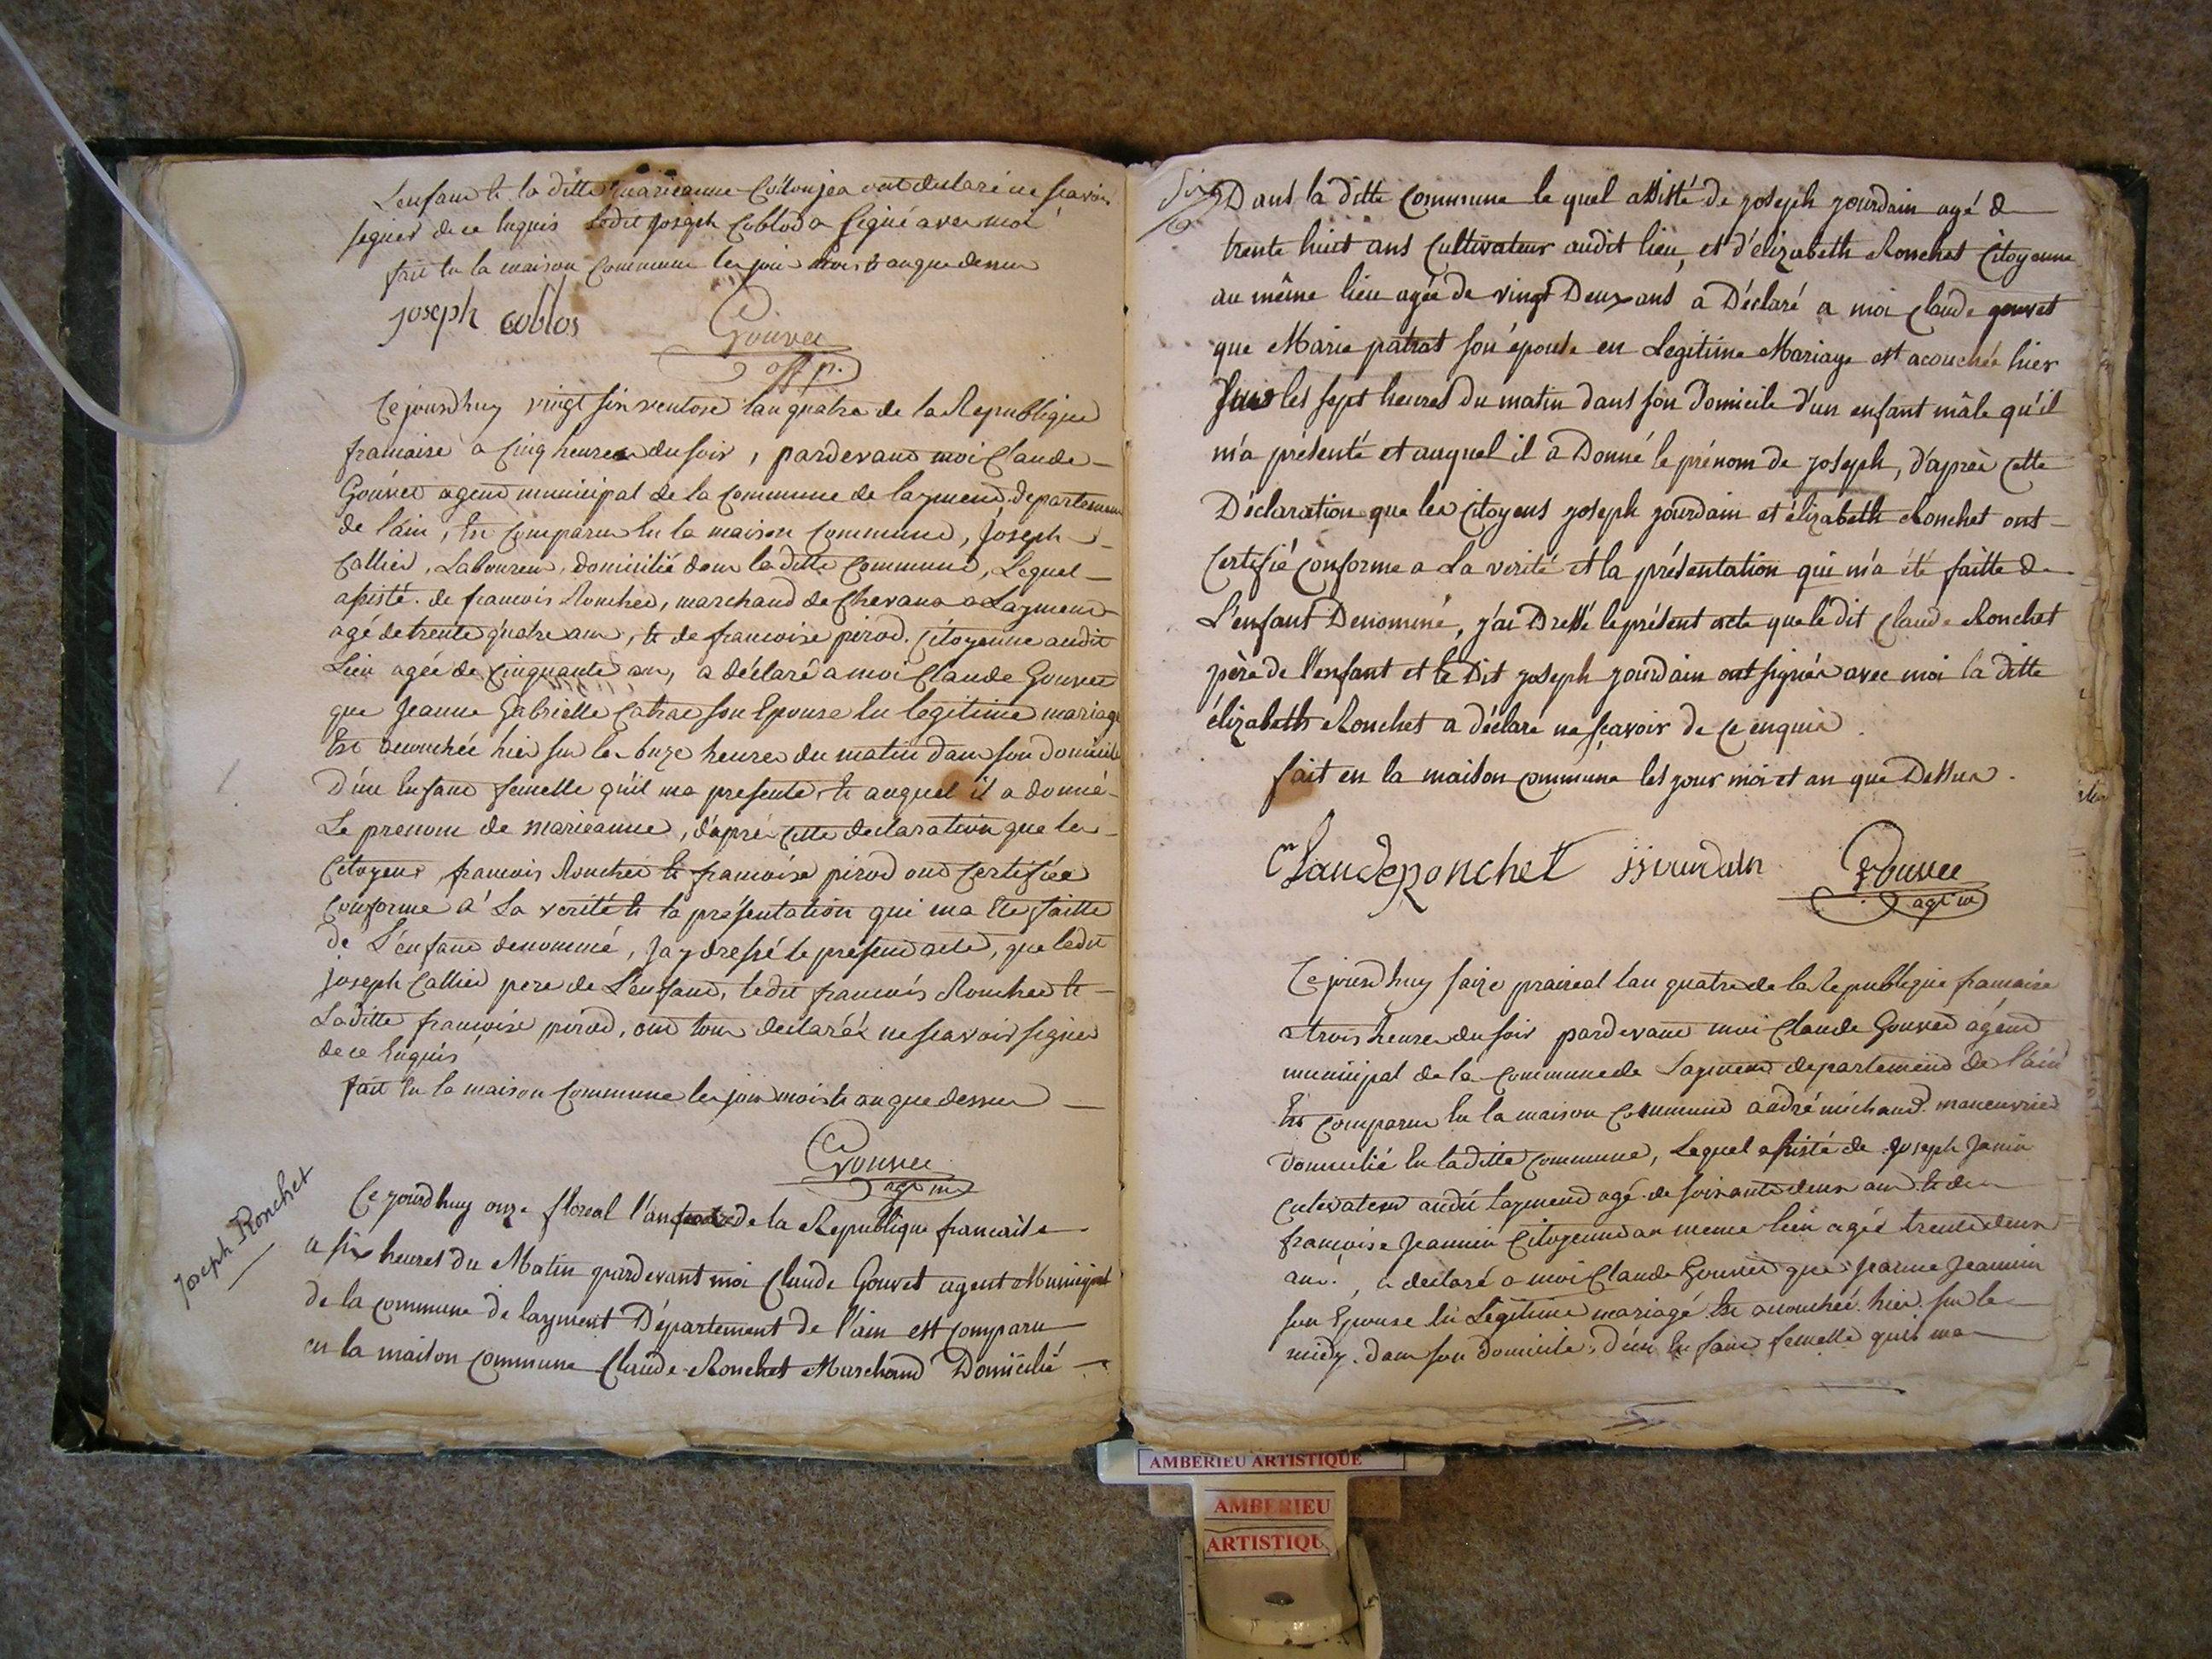 L'enfant et la ditte marieanne Collonjea ont declaré ne scavoir
signer de ce enquis ledit joseph Coblod a signé avec moi
fait en la maison Commune les jour mois et an que dessus
joseph coblos
Gouvet
off p.
Ce jourdhuy vingt six ventose l'an quatre de la Republique
francaise a cinq heures du soir, pardevant moi Claude
Gouvet agent municipal de la commune de laymend departement
de l'ain, Est comparu En la maison commune, Joseph
Callied, Laboureur, domicilié dans la ditte commune, Lequel
assisté de francois Rouched, marchand de Chevaux a Laymend
agé de trente quatre ans, et de francoise pirod, citoyenne audit
Lieu agée de cinquante ans, a déclaré a moi Claude Gouvet
que Jeanne Gabrielle son Epouse En legitime mariage
Est acouchée hier sur les onze heures du matin dans son domicile
D'un Enfant femelle qu'il ma presenté et auquel il a donné
Le prenom de marieanne, d'après cette declaration que les
Citoyens francois Rouched et francoise pirod ont certifiée
conforme a La verité et la présentation qui ma Eté faitte
de L'enfant denommé, Jay dressé le present acte, que ledit
joseph Callied pere de L'enfant, ledit francois Rouched et
Laditte françoise pirod, ont tous declarés ne scavoir signer
de ce Enquis
fait En la maison commune les jour mois et an que dessus
Gouvet
agt m
Joseph Ronchet
Ce jourdhuy onze floreal l'an quatre de la Republique francaise
a six heures du Matin pardevant moi Claude Gouvet agent Municipal
de la commune de layment Département de l'ain est comparu
en la maison commune Claude Ronchet Marchand Domicilié
Dans la ditte commune le quel assisté de joseph jourdain agé de
trente huit ans Cultivateur audit lieu, et d'élizabeth Ronchet Citoyenne
au même lieu agée de vingt Deux ans a Déclaré a moi Claude gouvet
que Marie patrat son épouse en Legitime Mariage est acouchée hier
sur les sept heures du matin dans son Domicile d'un enfant mâle qu'il
m'a présenté et auquel il a Donné le prénom de joseph, d'après cette
Déclaration que les Citoyens joseph jourdain et élizabeth Ronchet ont
Certifié conforme a La verité et la présentation qui m'a été faitte de
L'enfant Denommé, j'ai Dressé le présent acte que le dit Claude Ronchet
père de l'enfant et le Dit joseph jourdain ont signés avec moi la ditte
élizabeth Ronchet a déclaré ne sçavoir de ce enquis.
fait en la maison commune les jour mois et an que Dessus.
Clauderonchet jjourdain Gouvet
agt m
Ce jourdhuy saize praireal l'an quatre de la Republique francaise
a trois heures du soir pardevant moi Claude Gouvet agend
municipal de la commune de Laymend departement de l'ain
Est comparu En la maison commune andré michaud manouvrier
domicilié En laditte commune, Lequel assisté de joseph Janin
cultivateur audit laymend agé de soixante deux ans et de
francoise Jeannin citoyenne au meme lieu agée trente deux
ans, a declaré a moi Claude Gouvet que Jeanne Jeannin
son Epouse En Légitime mariage Est acouchée hier sur le
midy dans son domicile, d'un Enfant femelle qu'il ma
AMBERIEU ARTISTIQUE
AMBERIEU
ARTISTIQU